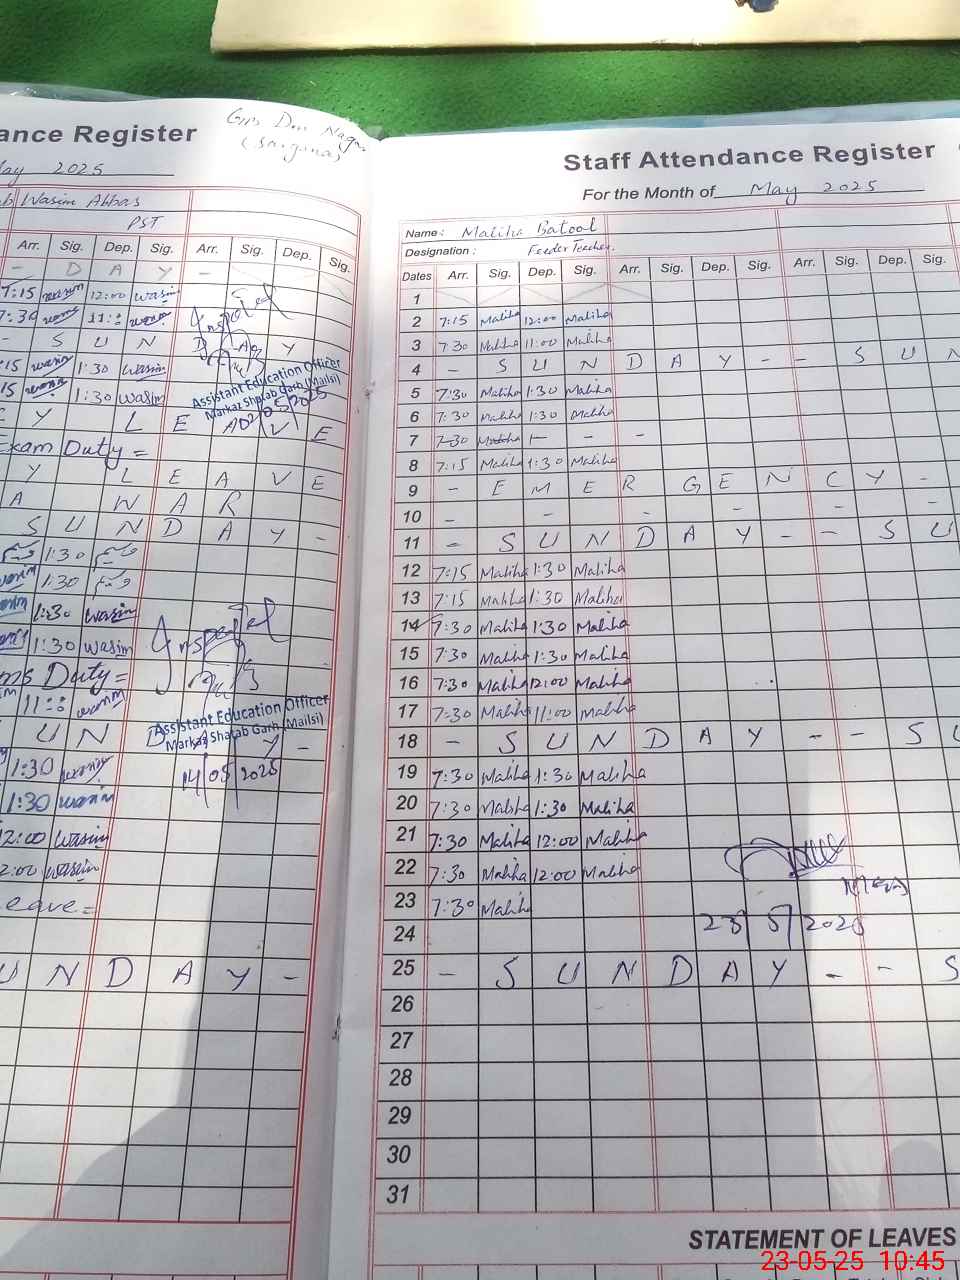 ance Register
May 2025
Wasim Abbas
PST
Arr. Sig. Dep. Sig. Arr. Sig. Dep. Sig.
- D A Y -
7:15 wasim 12:00 wasim
7:30 wasim 11:00 wasim
- S U N D A Y
:15 wasim 1:30 wasim
15 wasim 1:30 wasim
Inspected
Assistant Education Officer
Markaz Shatab Garh (Mailsi)
02/05/2025
E Y L E A V E
Exam Duty =
Y L E A V E
A W A R
S U N D A Y -
وسیم 1:30 وسیم
wasim 1:30 وسیم
wasim 1:30 wasim
wasim 1:30 wasim
ms Duty =
11:00 wasim
U N D A Y -
Inspected
Assistant Education Officer
Markaz Shatab Garh (Mailsi)
14/05/2025
1:30 wasim
1:30 wasim
12:00 wasim
2:00 wasim
Leave =
U N D A Y -
Staff Attendance Register
For the Month of May 2025
Name: Maliha Batool
Designation: Feeder Teacher.
Dates Arr. Sig. Dep. Sig. Arr. Sig. Dep. Sig. Arr. Sig. Dep. Sig.
1
2 7:15 Maliha 12:00 Maliha
3 7:30 Maliha 11:00 Maliha
4 - S U N D A Y - - S U N
5 7:30 Maliha 1:30 Maliha
6 7:30 Maliha 1:30 Maliha
7 7:30 Maliha 1- - - -
8 7:15 Maliha 1:30 Maliha
9 - E M E R G E N C Y -
10 - - - - - -
11 - S U N D A Y - - S U
12 7:15 Maliha 1:30 Maliha
13 7:15 Maliha 1:30 Maliha
14 7:30 Maliha 1:30 Maliha
15 7:30 Maliha 1:30 Maliha
16 7:30 Maliha 12:00 Maliha
17 7:30 Maliha 11:00 Maliha
18 - S U N D A Y - - S U
19 7:30 Maliha 1:30 Maliha
20 7:30 Maliha 1:30 Maliha
21 7:30 Maliha 12:00 Maliha
22 7:30 Maliha 12:00 Maliha
23 7:30 Maliha
24 23/5/2025
25 - S U N D A Y - - S
26
27
28
29
30
31
STATEMENT OF LEAVES
23-05-25 10:45